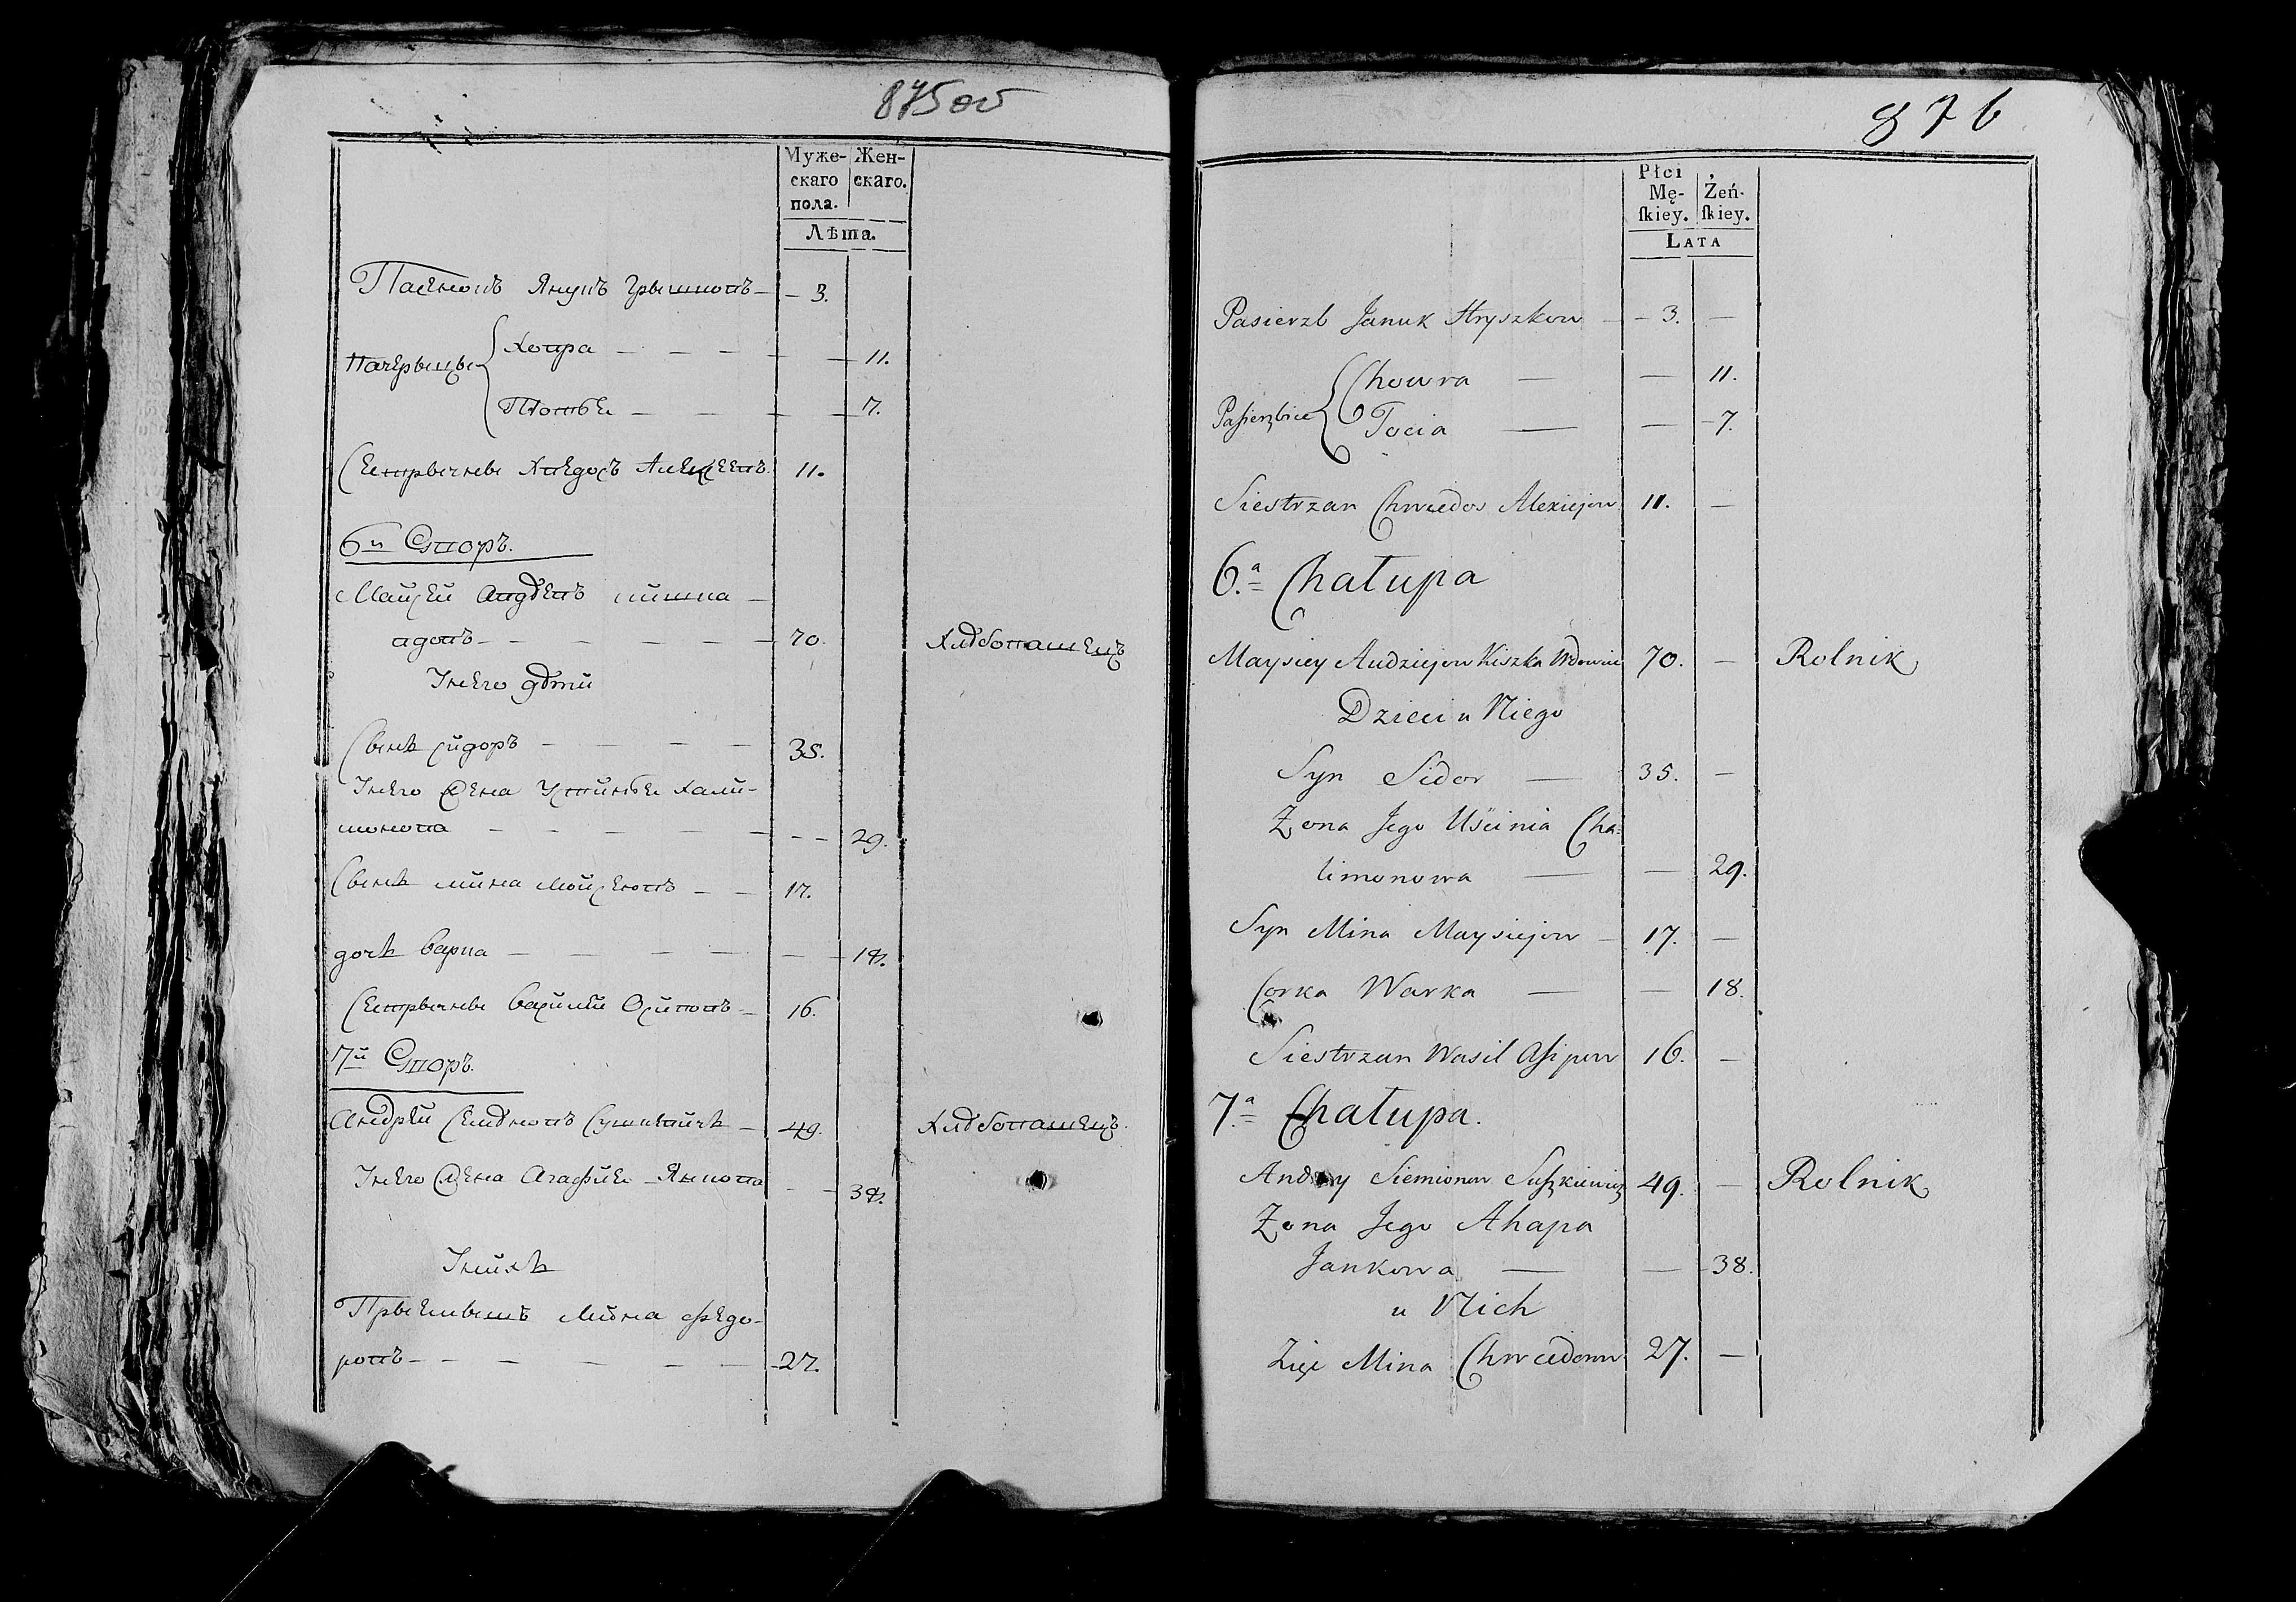 875 об
Муже-
скаго
пола.
Жен-
скаго.
Лѣта.
Пасеновъ Янукъ Грышковъ — 3.
Пачерыцы
Ховра — 11.
7.
Сестрычны Хведосъ Алексеевъ 11.
6й Сткоръ.
Майсей Авдѣевъ кишка
вдовъ — 70. Хлѣбопашецъ
Унего дѣти
Сынъ Сидоръ — 35.
Унего Жена Устинья Хали-
монова — 29.
Сынъ мина Мойсеювъ — 17.
дочь варка — 18.
Сестрычны василей Осиповъ — 16.
7й Сткоръ.
Андрей Семѣновъ Сушкевичъ — 49. Хлѣбопашецъ.
Унего Жена Агафия Янкова — 38.
Унихъ
Прыемышъ Мина Федо-
ровъ — 27.
876
Płci
Mę-
ſkiey.
Żeń-
ſkiey.
LATA
Pasierzb Januk Hryszkow — 3. —
Pasierzbice
Chowra — — 11.
Tocia — — 7.
Siestrzan Chwedos Alexiejow 11. —
6.a Chałupa
Maysiey Audziejow Kiszka Wdowiec 70. — Rolnik
Dzieci u Niego
Syn Sidor — 35. —
Żona Jego Uścinia Cha-
limonowa — — 29.
Syn Mina Maysiejow — 17. —
Corka Warka — — 18.
Siestrzan Wasil Asipow 16. —
7.a Chałupa.
Andrey Siemionow Suszkiewicz 49. — Rolnik
Żona Jego Ahapa
Jankowa — — 38.
u Nich
Zięć Mina Chwedorow 27. —